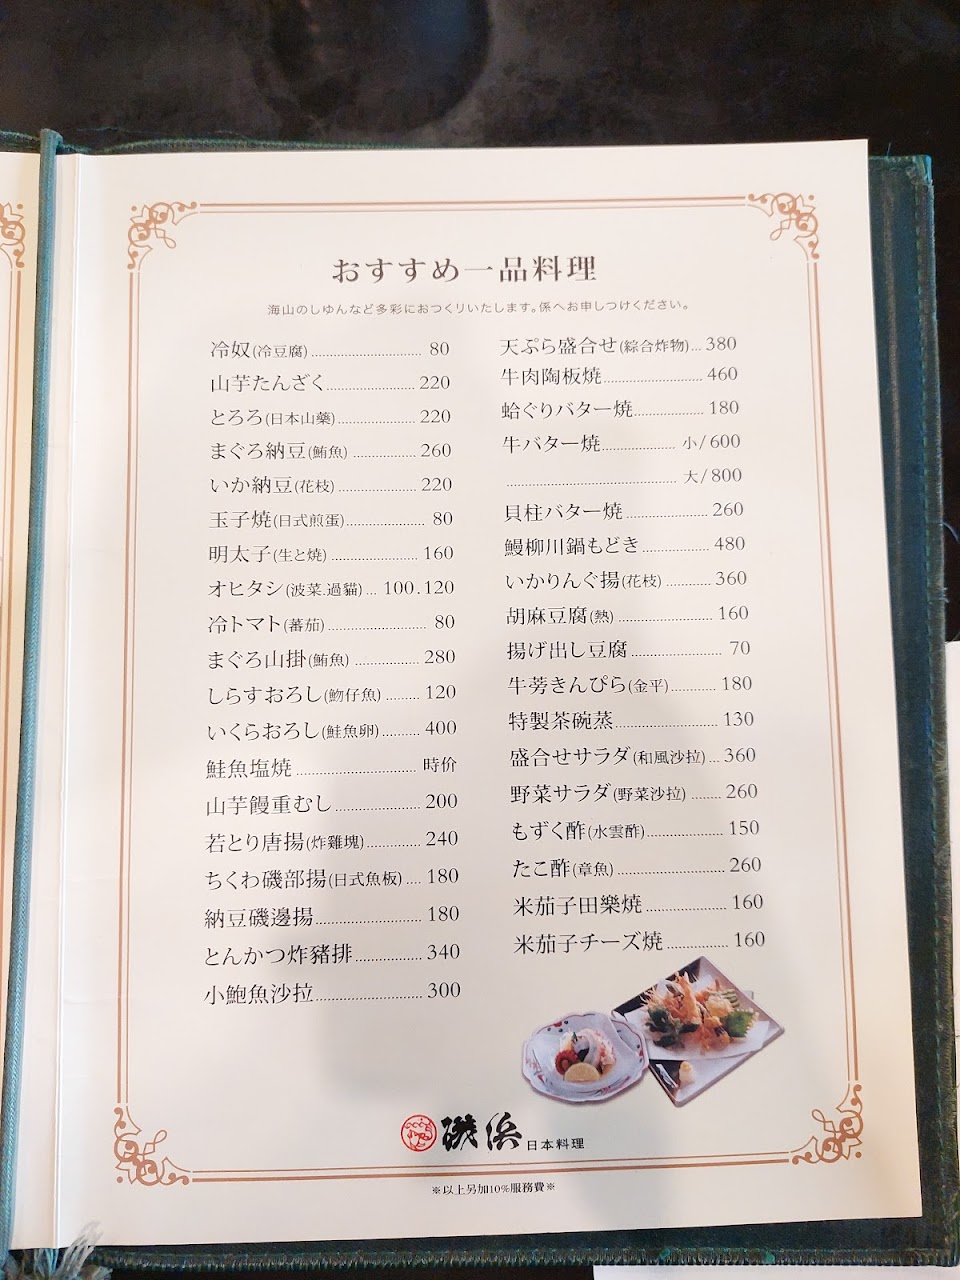 おすすめ一品料理
海山のしゆんなど多彩におつくりいたします。係へお申しつけください。
冷奴(冷豆腐)............................ 80
山芋たんざく...................... 220
とろろ(日本山藥)..................... 220
まぐろ納豆(鮪魚) ................ 260
いか納豆(花枝).................... 220
玉子燒(日式煎蛋).................... 80
明太子(生と燒) ...................... 160
オヒタシ(波菜.過貓)... 100.120
冷トマト(蕃茄)......................... 80
まぐろ山掛(鮪魚) ................ 280
しらすおろし(魩仔魚)......... 120
いくらおろし(鮭魚卵).......... 400
鮭魚塩燒 .............................. 時价
山芋饅重むし..................... 200
若とり唐揚(炸雞塊).............. 240
ちくわ磯部揚(日式魚板).... 180
納豆磯邊揚........................... 180
とんかつ炸豬排................. 340
小鮑魚沙拉........................... 300
天ぷら盛合せ(綜合炸物)... 380
牛肉陶板燒......................... 460
蛤ぐりバター燒.................. 180
牛バター燒................... 小/600
........................................... 大/800
貝柱バター燒..................... 260
鰻柳川鍋もどき................. 480
いかりんぐ揚(花枝)........... 360
胡麻豆腐(熱) ......................... 160
揚げ出し豆腐....................... 70
牛蒡きんぴら(金平)............ 180
特製茶碗蒸.......................... 130
盛合せサラダ(和風沙拉)... 360
野菜サラダ(野菜沙拉)........ 260
もずく酢(水雲酢)................... 150
たこ酢(章魚)........................... 260
米茄子田樂燒.................... 160
米茄子チーズ燒................ 160
磯浜 日本料理
※以上另加10%服務費※